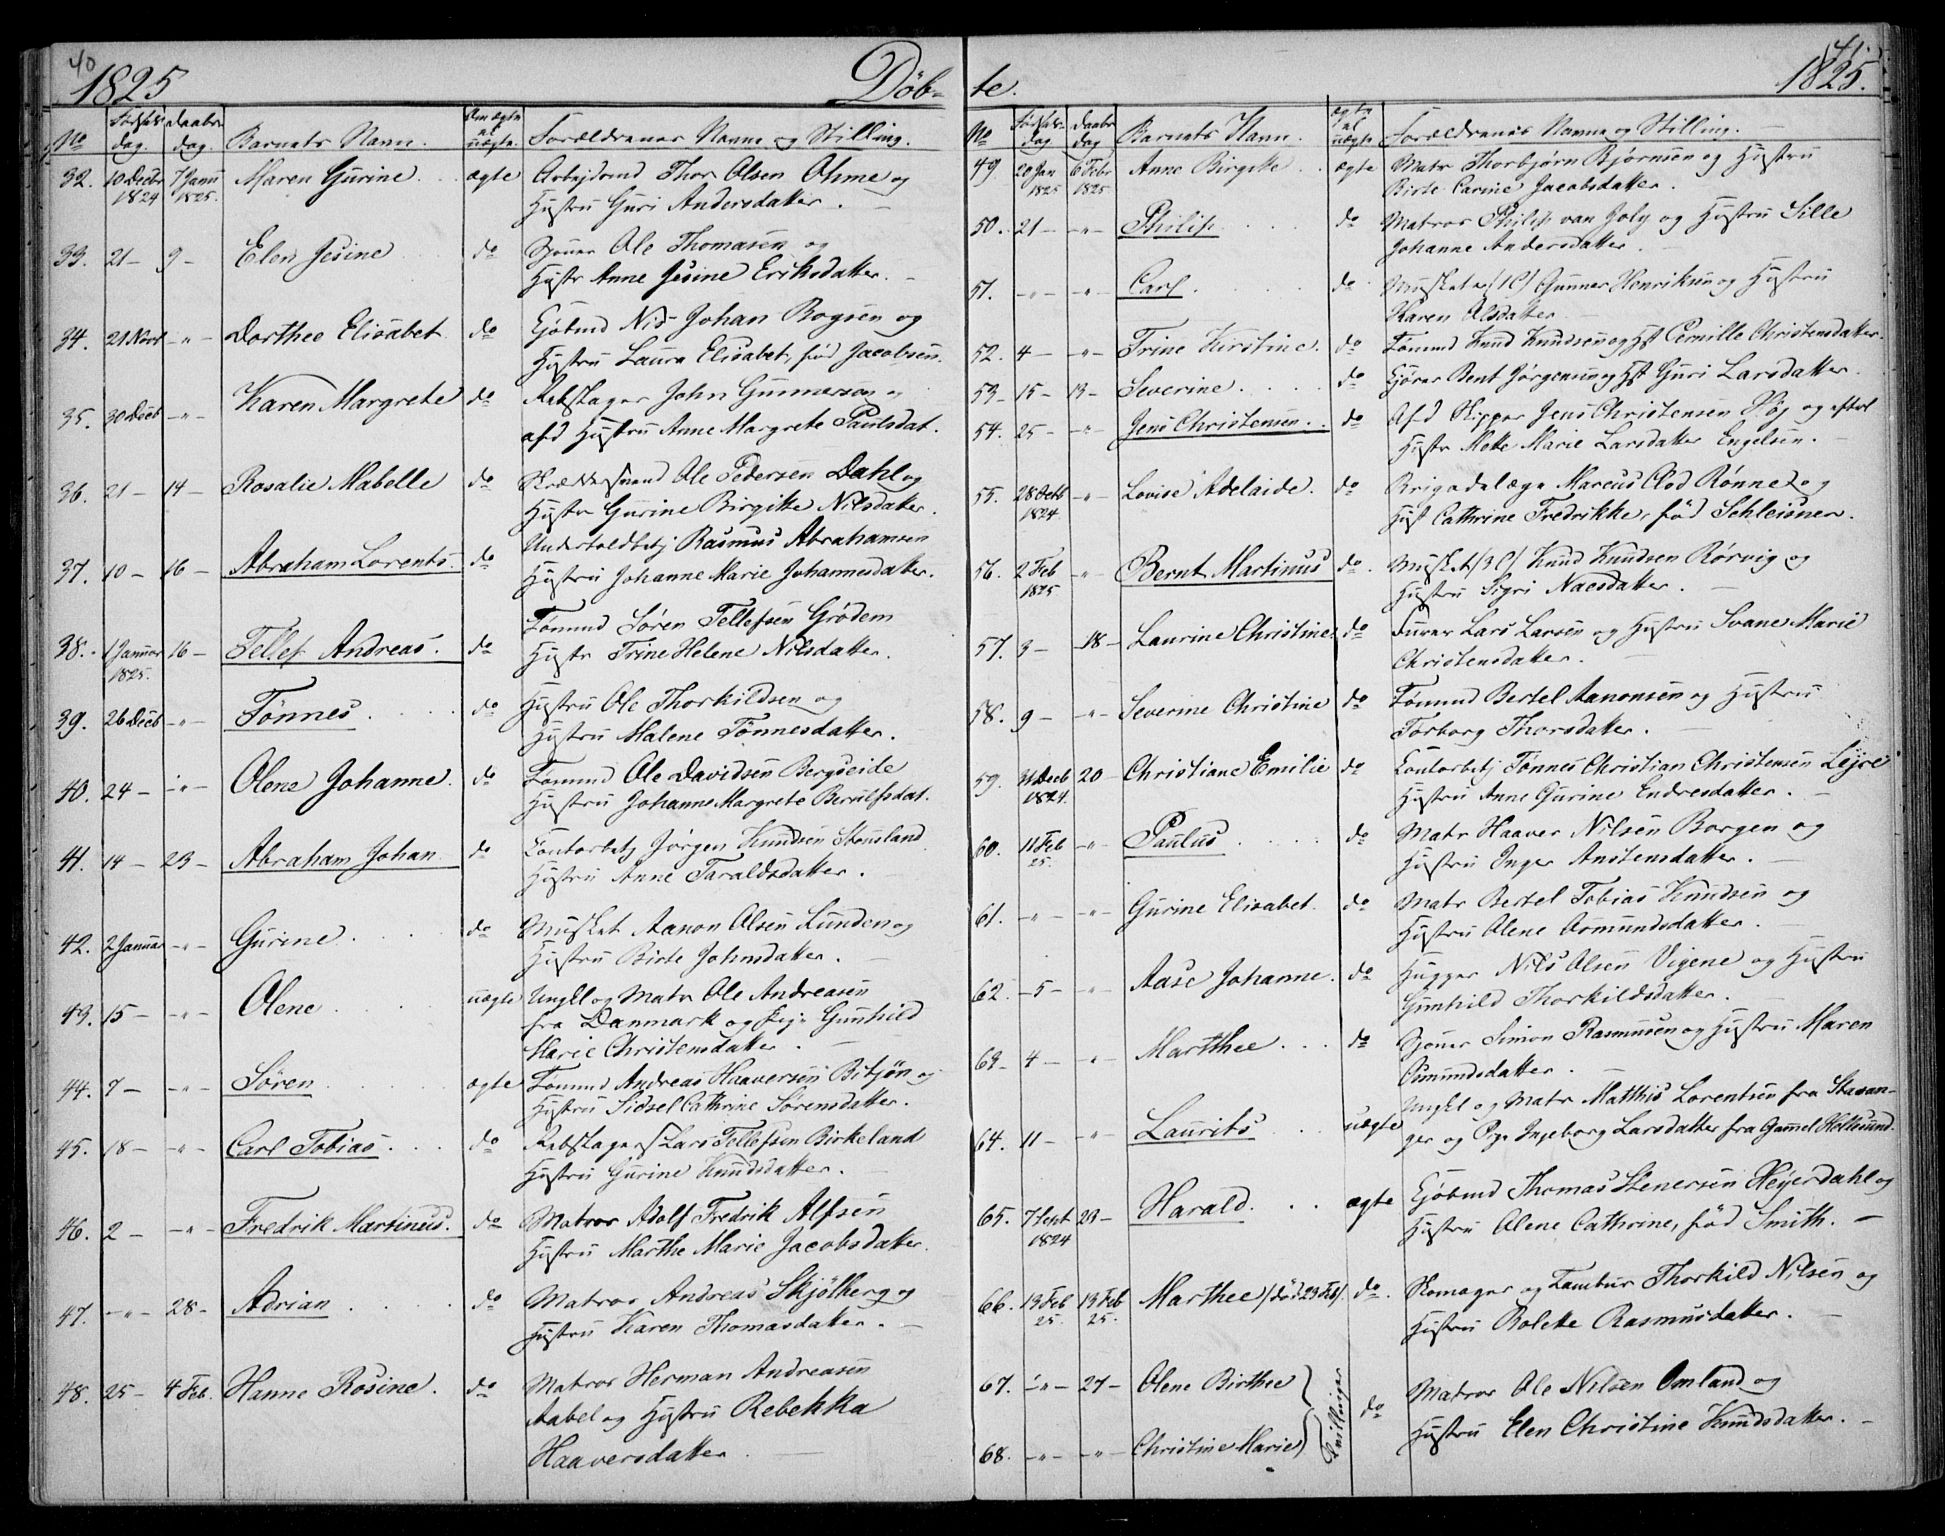 40
1825
Döb-
No
Fødsels dag.
Daabs dag.
Barnets Navn.
Om ægte el uægte.
Forældrenes Navne og Stilling.
32. 10 Decbr 1824 7 Janu 1825. Maren Gurine . . ægte Arbejdsmd Thor Olsen Ohme og
Hustru Guri Andersdatter.
33. 21 - 9 - Elen Jesine do Ole Thomasen og
Hustr Anne Jesine Eriksdatter.
34. 21 Novr - " - Dorthee Elisabet do Kjøbmd Nis Johan Bogsen og
Hustru Laura Elisabet, fød Jacobsen.
35. 30 Decb - " - Karen Margrete do Rebslager John Gunnerson og
afd Hustru Anne Margrete Paulsdat.
36. 21 - 14 - Rosalie Mabelle do Ole Pedersen Dahl og
Hustr Gurine Birgitte Nilsdatter.
37. 10 - 16 - Abraham Lorents. do Undertoldbetj Rasmus Abrahamsen
Hustru Johanne Marie Johannesdatter.
38. 1 Januar 1825. 16 - Tellef Andreas. do Tømmd Søren Tellefsen Grødem
Hustr Trine Helene Nilsdatter.
39. 26 Decb - " - Tønnes . . . . do Hustru Ole Thorkildsen og
Hustru Malene Tønnesdatter.
40. 24 - - " - Olene Johanne. do Tømmd Ole Davidsen Bergseide
Hustru Johanne Margrete Berulfsdat.
41. 14 - 23 - Abraham Johan do Contorbetj Jørgen Knudsen Stensland
Hustru Anne Taraldsdatter.
42. 2 Januar - " - Gurine . . . . do Musket Aanon Olsen Lunden og
Hustru Birte Johnsdatter.
43. 15 - - " - Olene . . . uægte Ungkl og Matr Ole Andreasen
fra Danmark og Pige Gunhild
Marie Christensdatter.
44. 7 - - " - Søren . . . . ægte Tømmd Andreas Haaversen Bitjøn og
Hustru Sidsel Cathrine Sørensdatter.
45. 18 - - " - Carl Tobias . . . do Rebslager Lars Tellefsen Birkeland
Hustru Gurine Knudsdatter.
46. 2 - - " - Fredrik Martinus. do Matros Adolf Fredrik Alfsen
Hustru Marthe Marie Jacobsdatter.
47. - " - 28 - Adrian . . . . do Matros Andreas Skjölberg og
Hustru Karen Thomasdatter.
48. 25 - 4 Feb. Hanne Rosine. do Matros Herman Andreasen
Aabel og Hustru Rebekka
Haaversdatter
41.
te.
1825.
No
Fødsels dag
Daabs dag
Barnets Navn.
ægte el uægte
Forældrenes Navne og Stilling.
49. 20 Jan 1825 6 Febr 1825 Anne Birgitte . . ægte Matr Thorbjørn Bjørnsen og Hustru
Birte Carine Jacobsdatter.
50. 21 - - " - Philip . . . . do Matros Philip van Joly og Hustru Sille
Johanne Andersdatter.
51. - " - - " - Carl . . . . do Gunner Henriksen og Hustru
Karen Olsdatter
52. 4 - - " - Trine Kirstine. do Tømmd Knud Knudsen og Hst Pernille Christensdatter.
53. 15 - 13 - Severine . . . . do Bent Jørgensen og Hst Guri Larsdatter.
54. 25 - - " - Jens Christensen . . do Afd Skipper Jens Christensen Høj og
Hustr Mette Marie Larsdatter Engelsen.
55. 28 Octb 1824. - " - Lovise Adelaide. do Brigadelæge Marcus Clod Rønne og
Hust Cathrine Fredrikke, fød Schleisner.
56. 2 Feb 1825 - " - Bernt Martinus do. Knud Knudsen Rørvig og
Hustru Sigri Naesdatter.
57. 3 - 18 - Laurine Christine do Furer Lars Larsen og Hustru Svane Marie
Christensdatter.
58. 9 - - " - Severine Christine do Tømmd Bertel Aanonsen og Hustru
Torborg Thorsdatter.
59. 31 Decb 1824. 20 - Christiane Emilie do Contorbetj Tønnes Christian Christensen Lejre
Hustru Anne Gurine Endresdatter.
60. 11 Feb 25. - " - Paulus . . . . do Matr Haaver Nilsen Borgen og
Hustru Inger Anstensdatter.
61. - " - - " - Gurine Elisabet. do Matr Bertel Tobias Knudsen og
Hustru Olene Osmundsdatter.
62. - 5 - - " - Aase Johanne. do Hugger Nils Olsen Vigene og Hustru
Gunhild Thorkildsdatter.
63 - 4 - - " - Marthee . . . do Simon Rasmusen og Hustru Maren
Osmundsdatter.
64. 11 - - " - Laurits . . . uægte Ungkl og Matr Matthis Lorentsen fra Stavan-
ger og Pige Ingeborg Larsdatter fra Gammel Hellesund.
65. 7 Sept 1824 23 - Harald. . . . ægte Kjøbmd Thomas Stenersen Heyerdahl og
Hustru Olene Cathrine, fød Smith.
66. 13 Feb 25. 13 Feb 25. Marthee (død 23 Feb). do. Skomager og Tambur Thorkild Nilsen og
Hustru Bolette Rasmusdatter.
67. - " - 27 - Olene Birthee
Tvillinger do Matros Ole Nilsen Omland og
68. - " - - " - Christine Marie Hustru Elen Christine Knudsdatter.